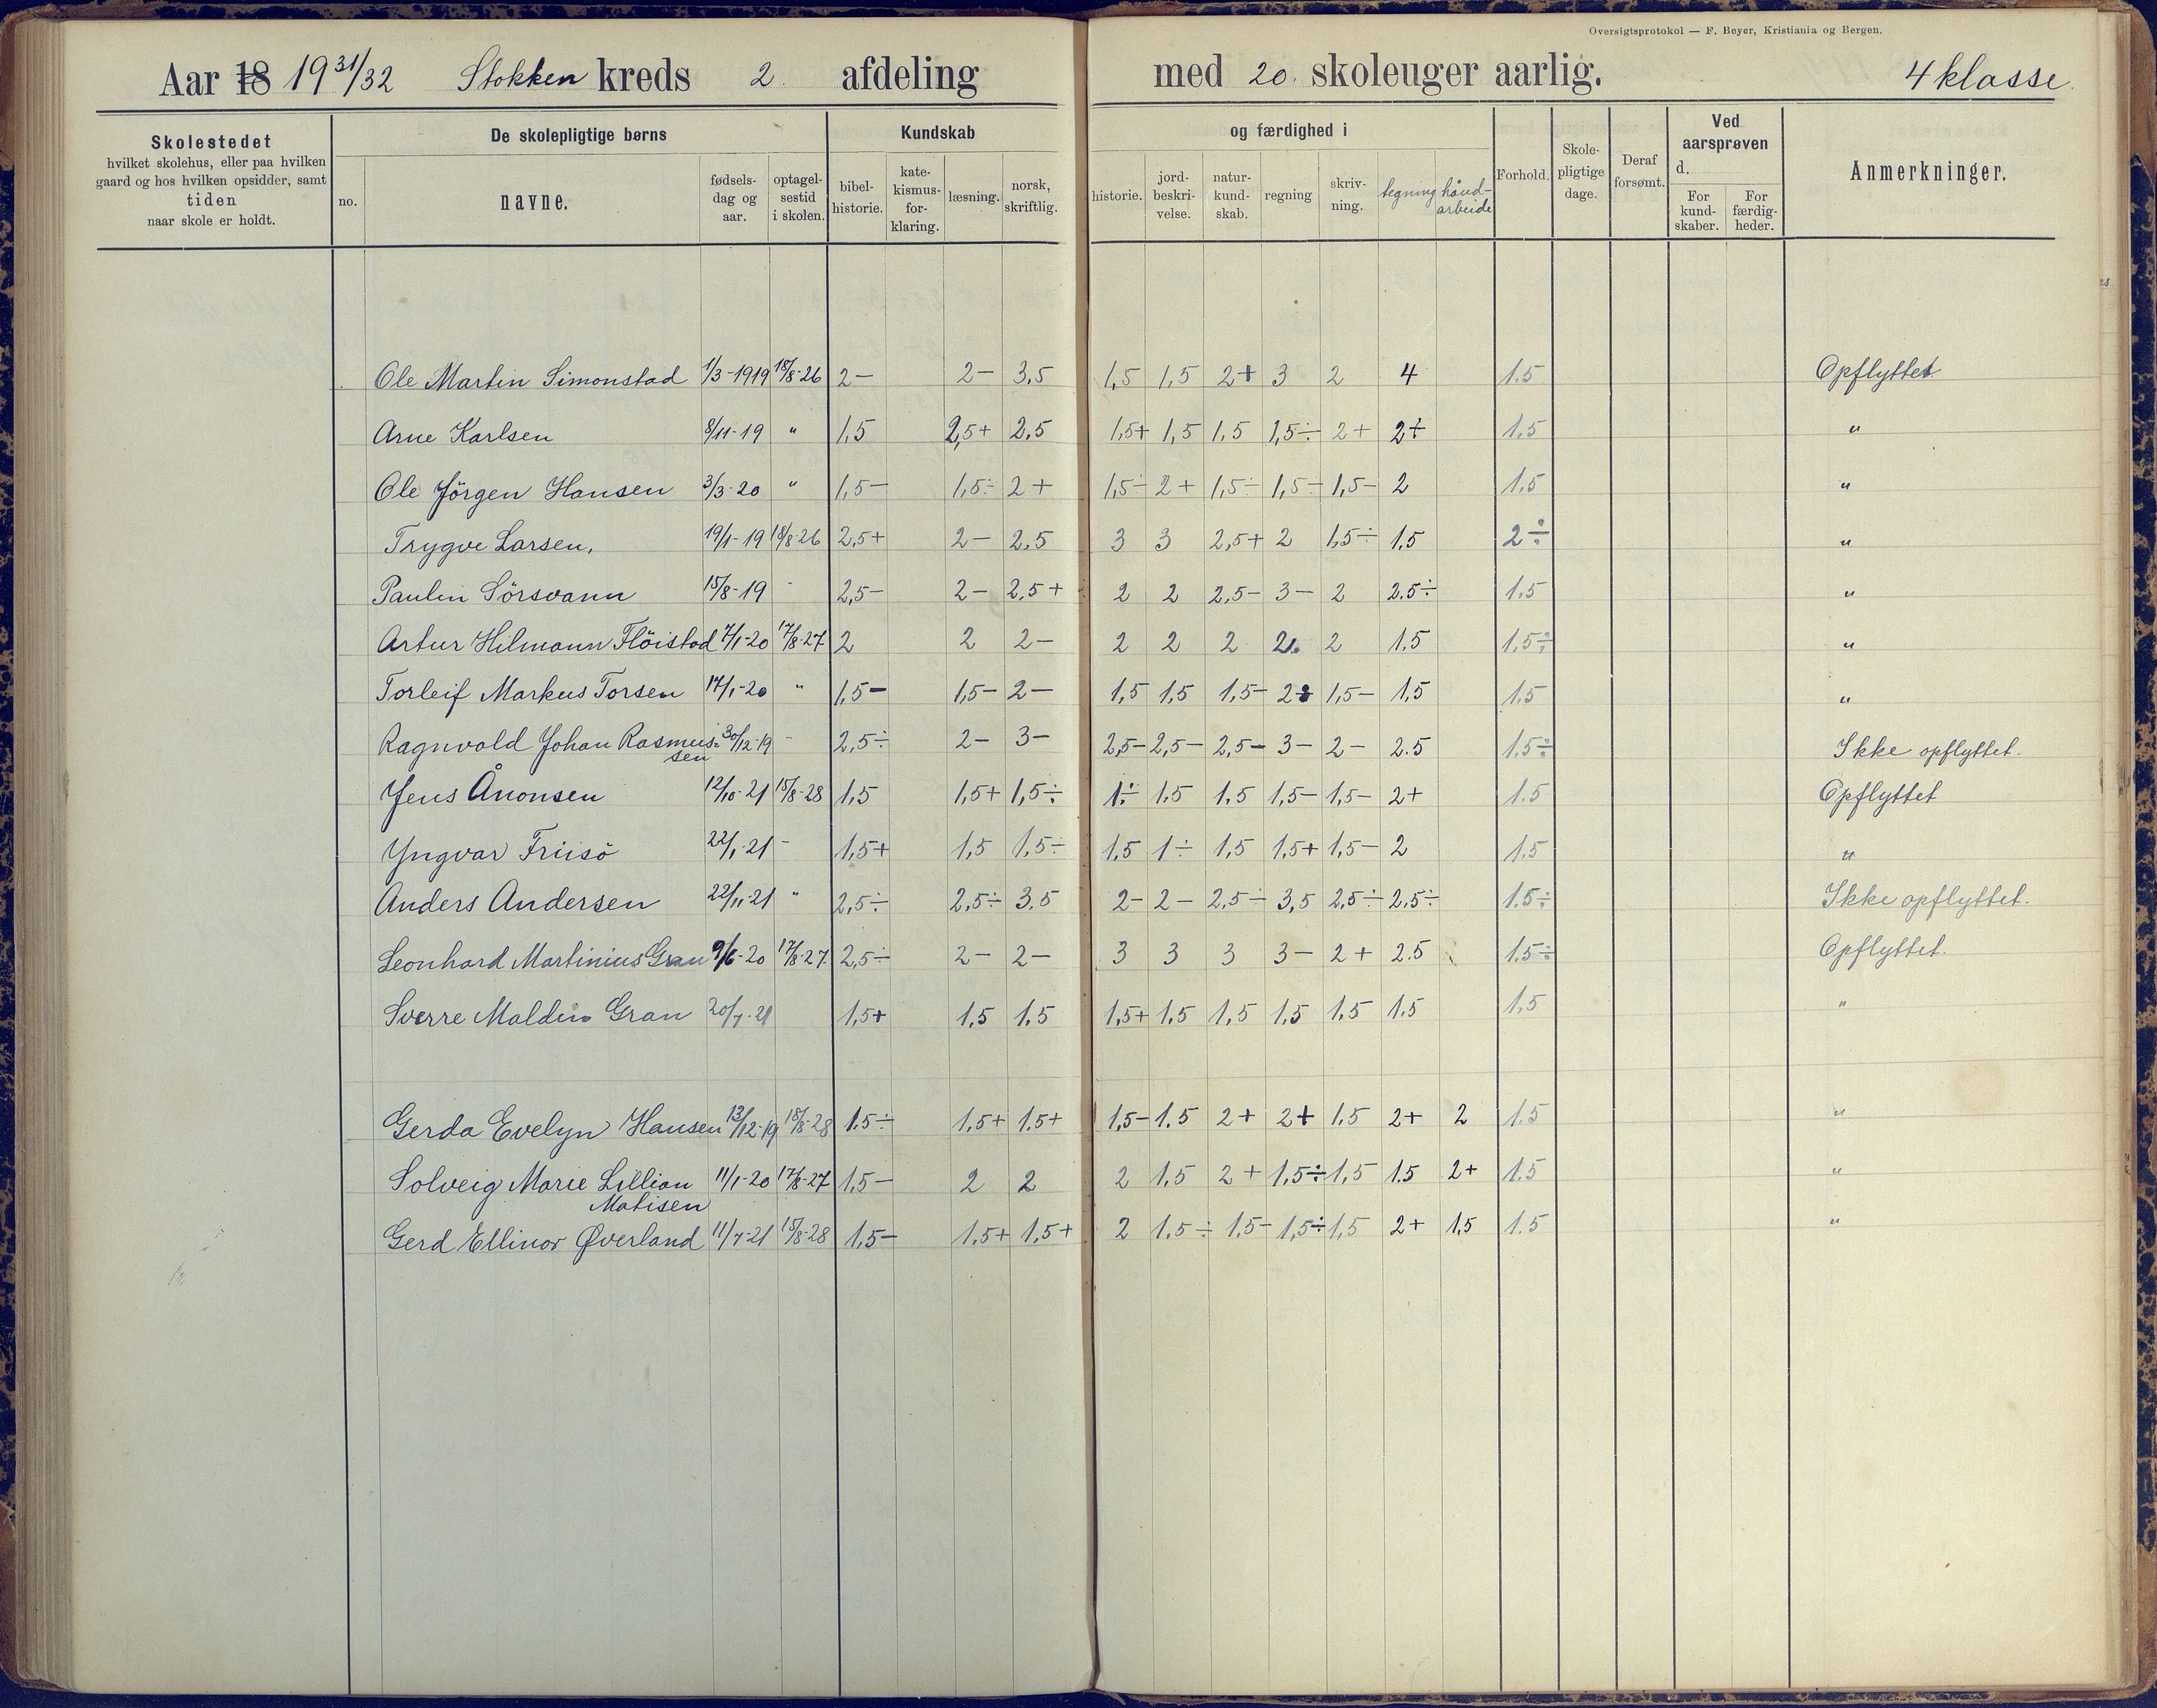 Oversigtsprotokol — F. Beyer, Kristiania og Bergen.
Aar 18 19 31/32 Stokken kreds 2. afdeling med 20. skoleuger aarlig. 4 klasse.
Skolestedet
hvilket skolehus, eller paa hvilken
gaard og hos hvilken opsidder, samt
tiden
naar skole er holdt.
De skolepligtige børns
no.
navne.
fødsels-
dag og
aar.
optagel-
sestid
i skolen.
Kundskab
bibel-
historie.
kate-
kismus-
for-
klaring.
læsning.
norsk,
skriftlig.
og færdighed i
historie.
jord-
beskri-
velse.
natur-
kund-
skab.
regning
skriv-
ning.
tegning
hånd-
arbeide
Forhold.
Skole-
pligtige
dage.
Deraf
forsømt.
Ved
aarsprøven
d.
For
kund-
skaber.
For
færdig-
heder.
Anmerkninger.
Ole Martin Simonstad 1/3-1919 18/8-26 2- 2- 3,5 1,5 1,5 2+ 3 2 4 1.5 Opflyttet
Arne Karlsen 8/11-19 " 1,5 2,5+ 2,5 1,5+ 1,5 1,5 1,5÷ 2+ 2+ 1.5 "
Ole Jörgen Hansen 3/3-20 " 1,5- 1,5÷ 2+ 1,5- 2+ 1,5- 1,5- 1,5- 2 1,5 "
Trygve Larsen, 19/1-19 18/8-26 2,5+ 2- 2,5 3 3 2,5+ 2 1,5÷ 1,5 2÷ "
Paulin Sörsvann 15/8-19 - 2,5- 2- 2,5+ 2 2 2,5- 3- 2 2.5÷ 1.5 "
Artur Hilmann Flöistad 7/1-20 17/8-27 2 2 2- 2 2 2 2. 2 1.5 1.5÷ "
Torleif Markus Torsen 17/1-20 " 1,5- 1,5- 2- 1,5 1,5 1,5- 2÷ 1,5- 1,5 1.5 "
Ragnvald Johan Rasmus- 30/12-19 - 2,5÷ 2- 3- 2,5- 2,5- 2,5- 3- 2- 2.5 1.5÷ Ikke opflyttet.
sen
Jens Ånonsen 12/10-21 15/8-28 1,5 1,5+ 1,5÷ 1÷ 1.5 1.5 1,5- 1,5- 2+ 1.5 Opflyttet
Yngvar Friisö 22/1-21 - 1,5+ 1,5 1,5÷ 1,5 1÷ 1,5 1,5+ 1,5- 2 1.5 "
Anders Andersen 22/11-21 " 2,5÷ 2,5÷ 3,5 2- 2- 2,5÷ 3,5 2,5÷ 2,5÷ 1.5÷ Ikke opflyttet.
Leonhard Martinius Gran 9/6-20 17/8-27 2,5÷ 2- 2- 3 3 3 3- 2+ 2.5 1.5÷ Opflyttet.
Sverre Maldin Gran 20/7-21 1,5+ 1,5 1.5 1,5+ 1.5 1,5 1,5 1,5 1.5 1,5 "
Gerda Evelyn Hansen 13/12-19 18/8-28 1.5÷ 1,5+ 1.5+ 1,5- 1.5 2+ 2+ 1.5 2+ 2 1.5 "
Solveig Marie Lillian 11/1-20 17/8-27 1,5- 2 2 2 1,5 2+ 1,5÷ 1,5 1.5 2+ 1.5 "
Matisen
Gerd Ellinor Øverland 11/7-21 15/8-28 1,5- 1,5+ 1,5+ 2 1,5÷ 1,5- 1,5÷ 1,5 2+ 1,5 1.5 "